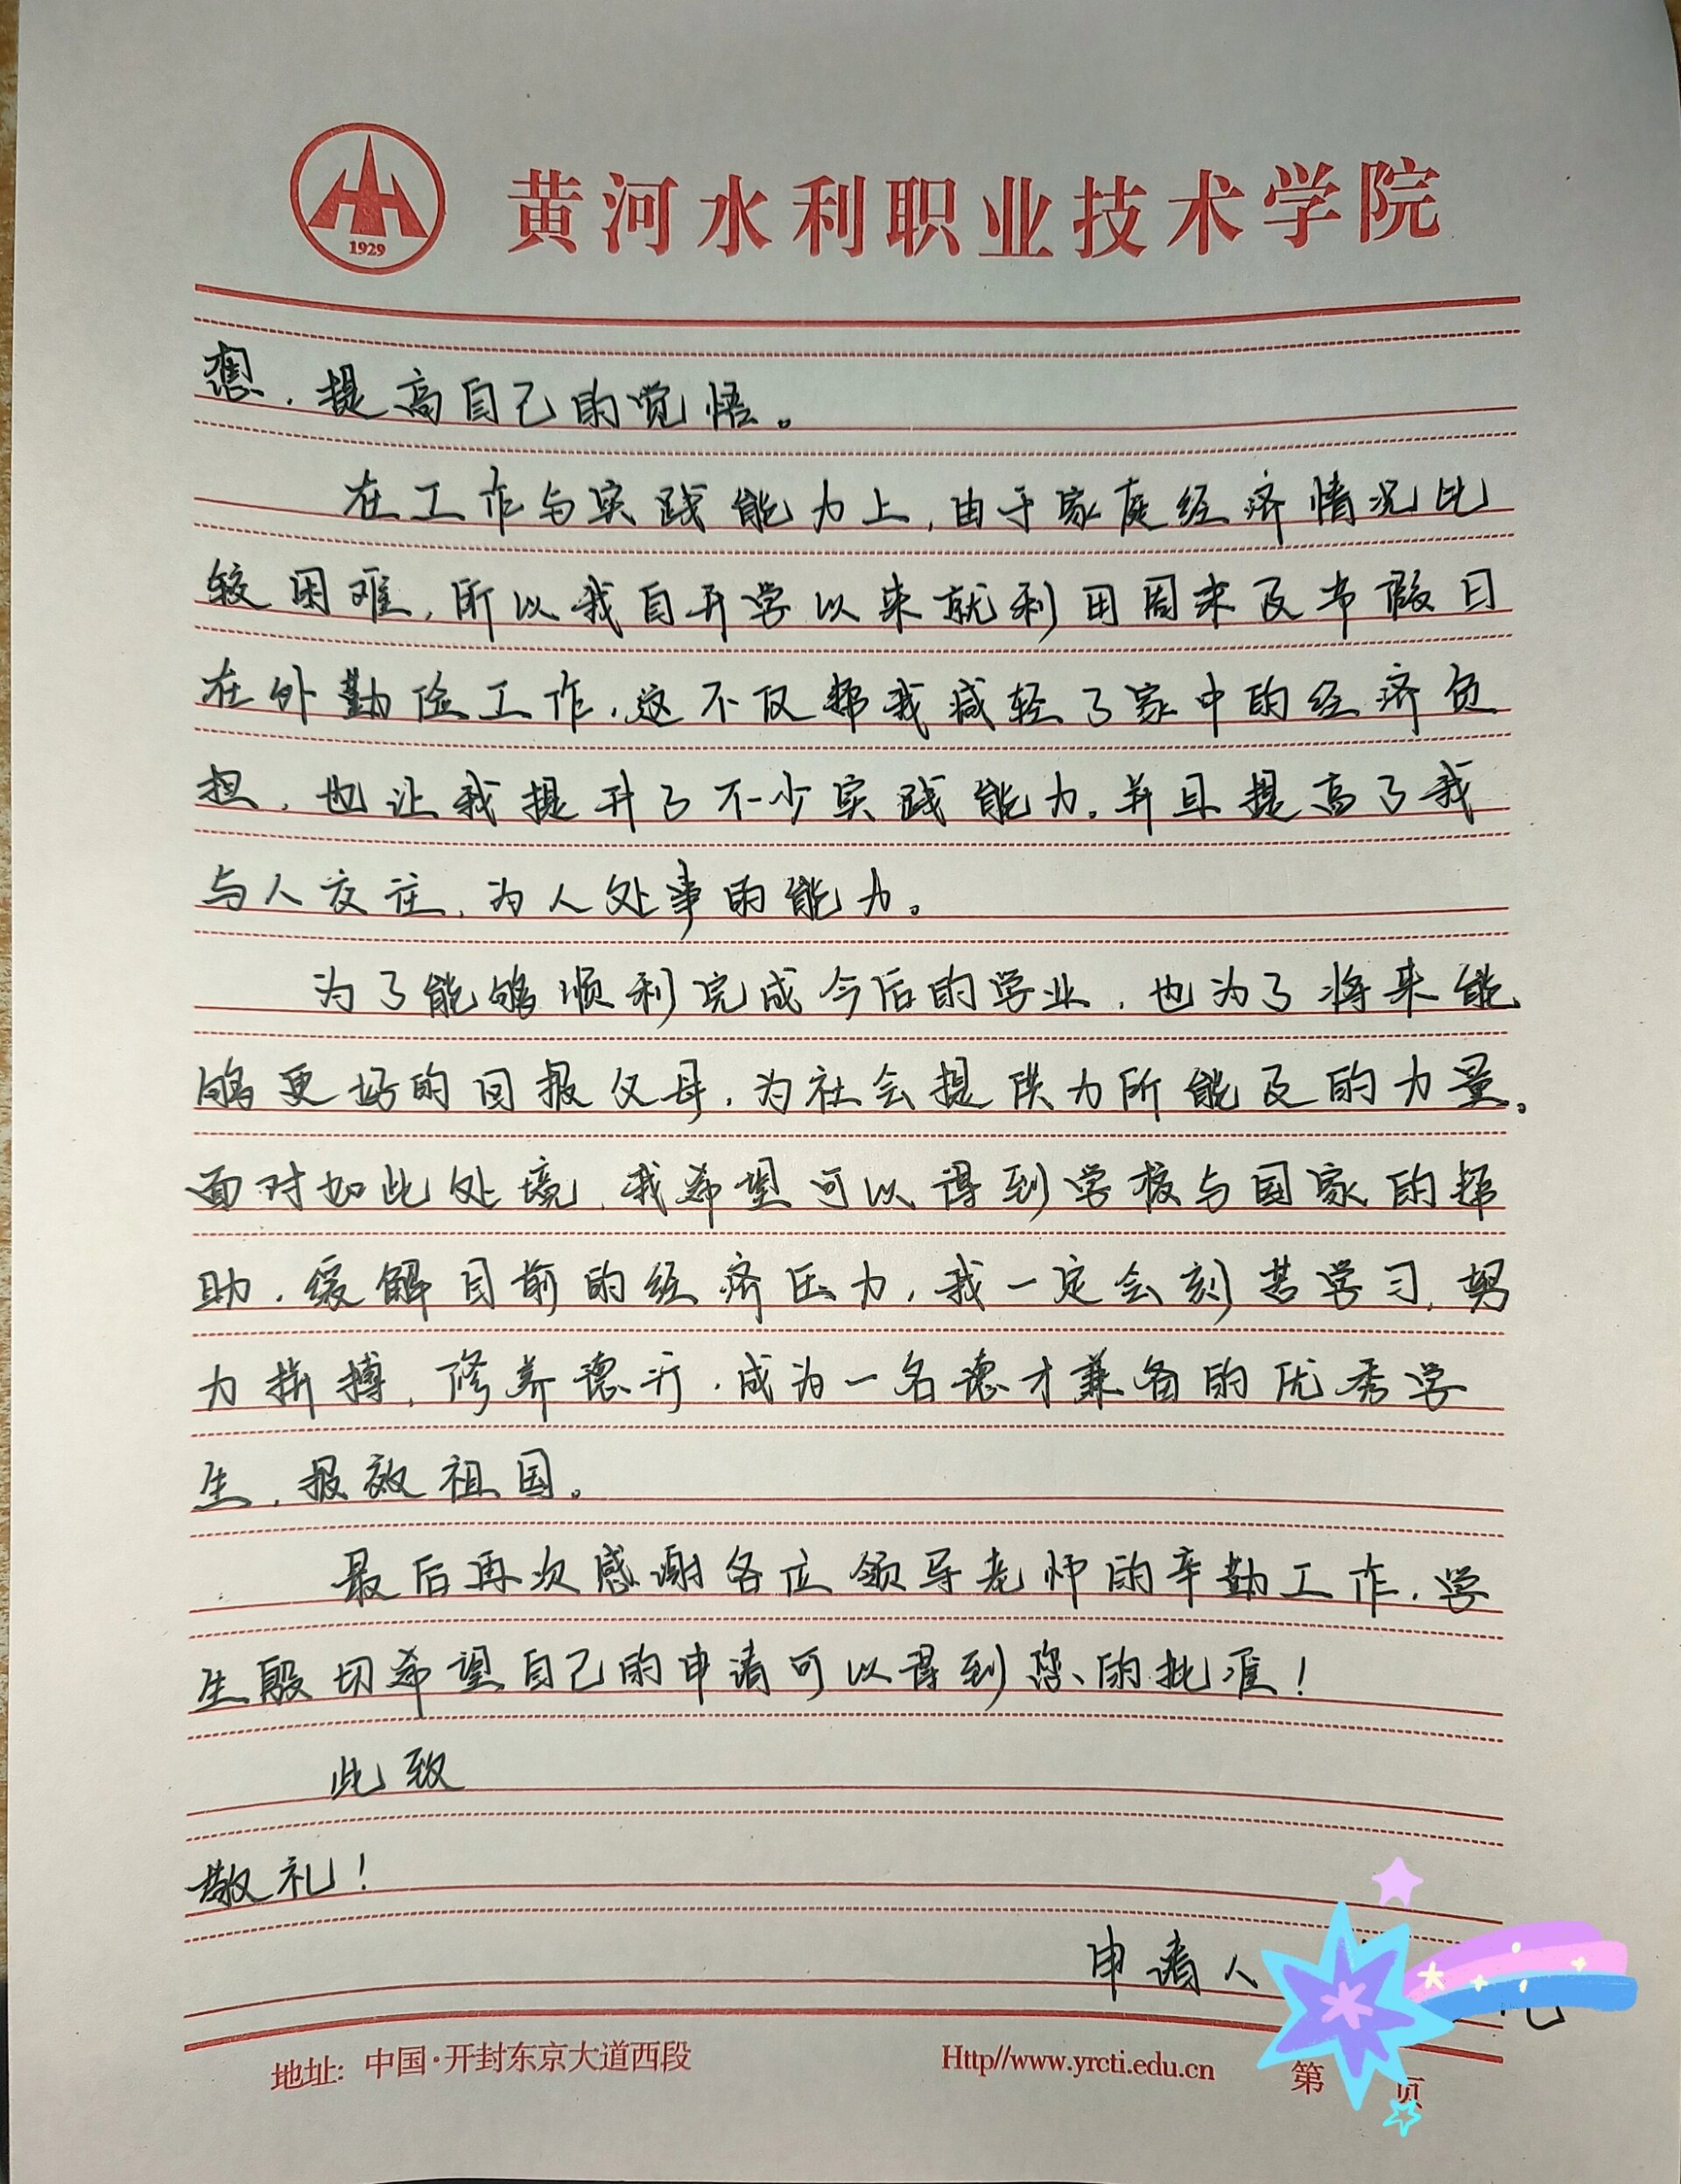 1929
黄河水利职业技术学院
想，提高自己的觉悟。
在工作与实践能力上，由于家庭经济情况比
较困难，所以我自开学以来就利用周末及节假日
在外勤俭工作，这不仅帮我减轻了家中的经济负
担，也让我提升了不少实践能力。并且提高了我
与人交往，为人处事的能力。
为了能够顺利完成今后的学业，也为了将来能
够更好的回报父母，为社会提供力所能及的力量。
面对如此处境，我希望可以得到学校与国家的帮
助，缓解目前的经济压力，我一定会刻苦学习，努
力拼搏，修养德行，成为一名德才兼备的优秀学
生，报效祖国。
最后再次感谢各位领导老师的辛勤工作，学
生殷切希望自己的申请可以得到您的批准！
此致
敬礼！
申请人
地址：中国·开封东京大道西段 Http//www.yrcti.edu.cn 第 页